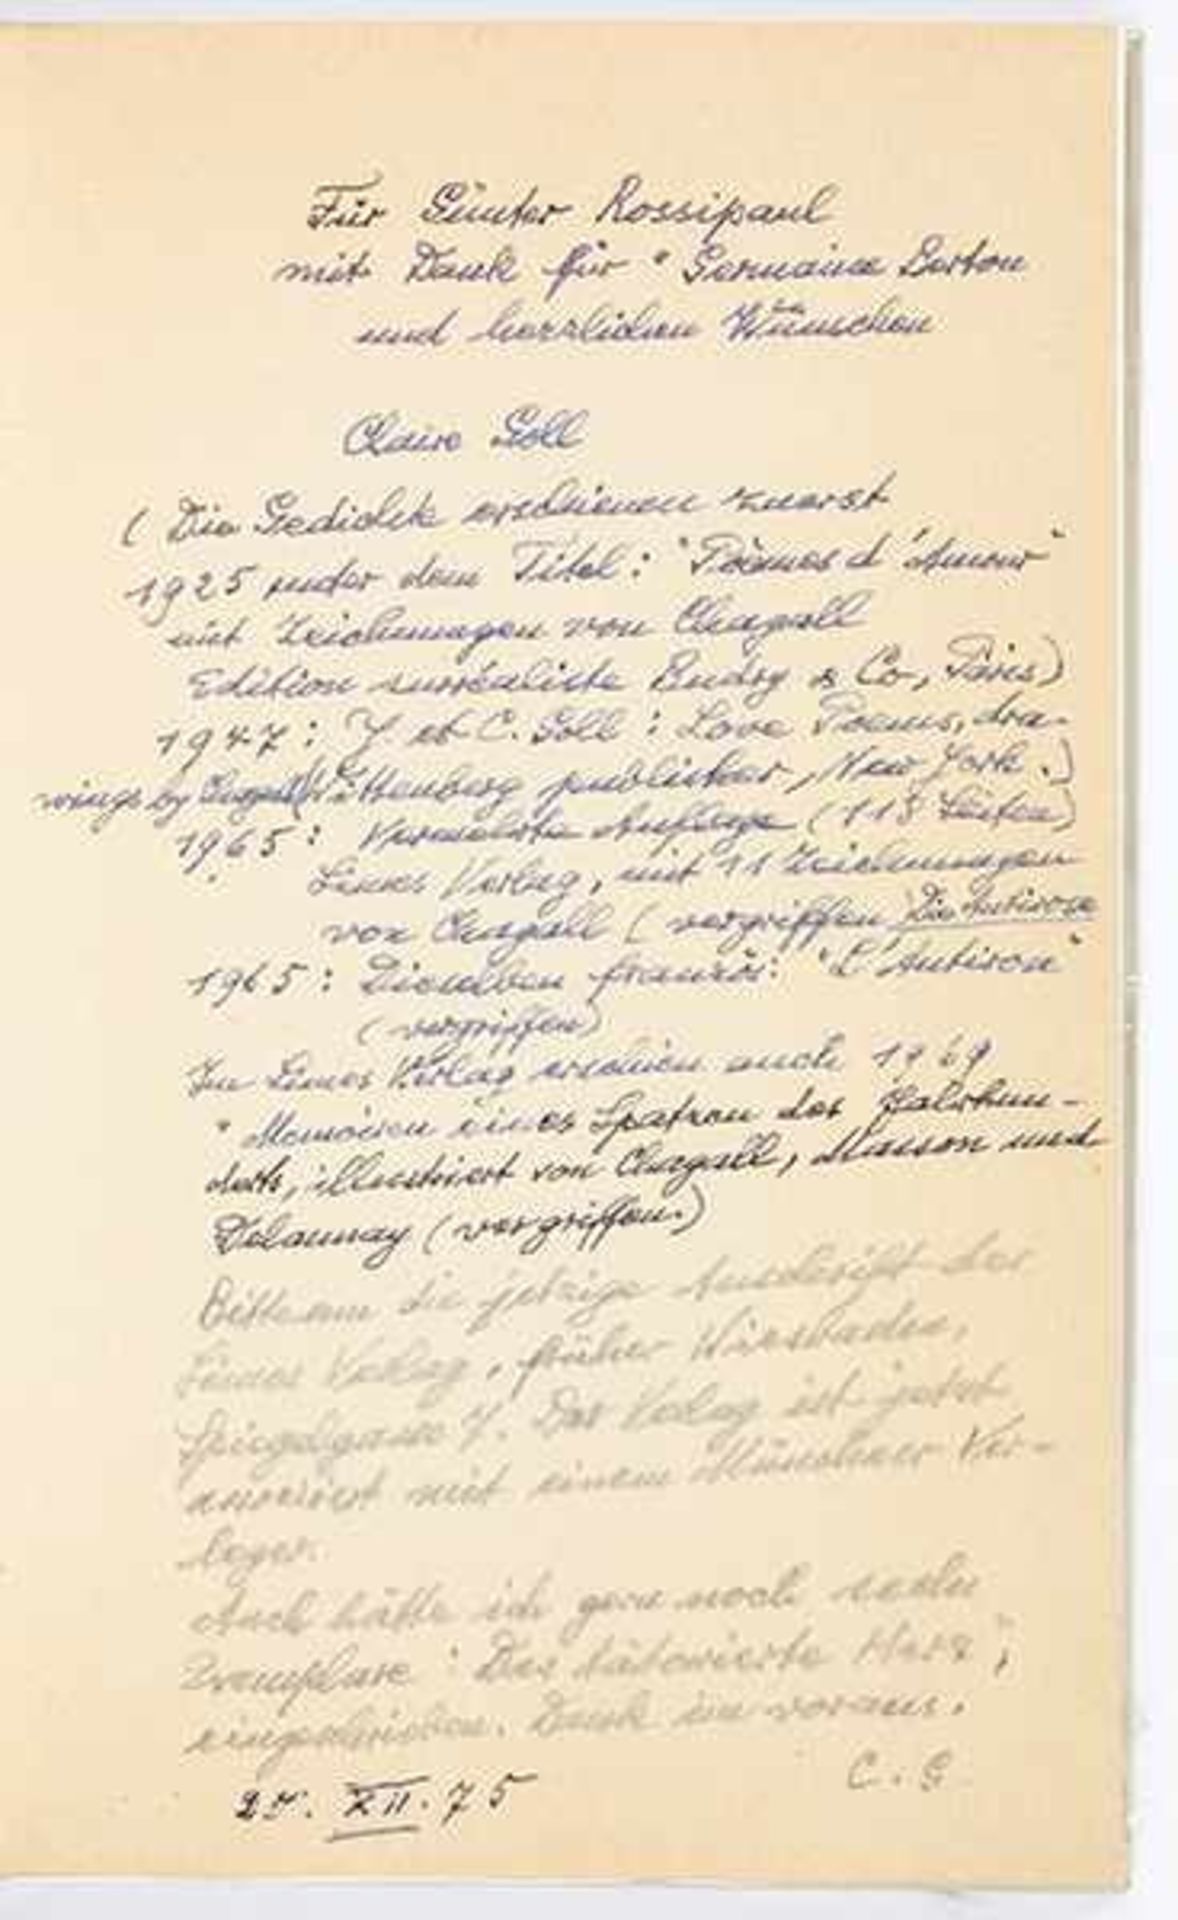 Für Günter Rossipaul
mit Dank für "Germaine Berton
und herzlichen Wünschen
Claire Goll
( Die Gedichte erschienen zuerst
1925 unter dem Titel: "Poèmes d'Amour"
mit Zeichnungen von Chagall
Edition surréaliste Budry & Co, Paris)
1947: Y. et C. Goll: Love Poems, dra-
wings by Chagall (Wittenborg publisher, New York.)
1965: Vermehrte Auflage (115 Seiten)
Limes Verlag, mit 11 Zeichnungen
von Chagall ( vergriffen Die Antirose
1965: Dieselben französ: "L'Antirose"
(vergriffen)
Im Limes Verlag erschien auch 1969
"Memoiren eines Spatzen des Jahrhun-
derts, illustriert von Chagall, Masson und
Delaunay (vergriffen.)
Bitte um die jetzige Anschrift des
Limes Verlag, früher Wiesbaden,
Spiegelgasse 7. Der Verlag ist jetzt
associiert mit einem Münchner Ver-
leger.
Auch hätte ich gern noch sechs
Exemplare: Das tätowierte Herz",
eingeschrieben. Dank im voraus.
C. G
XII. 75